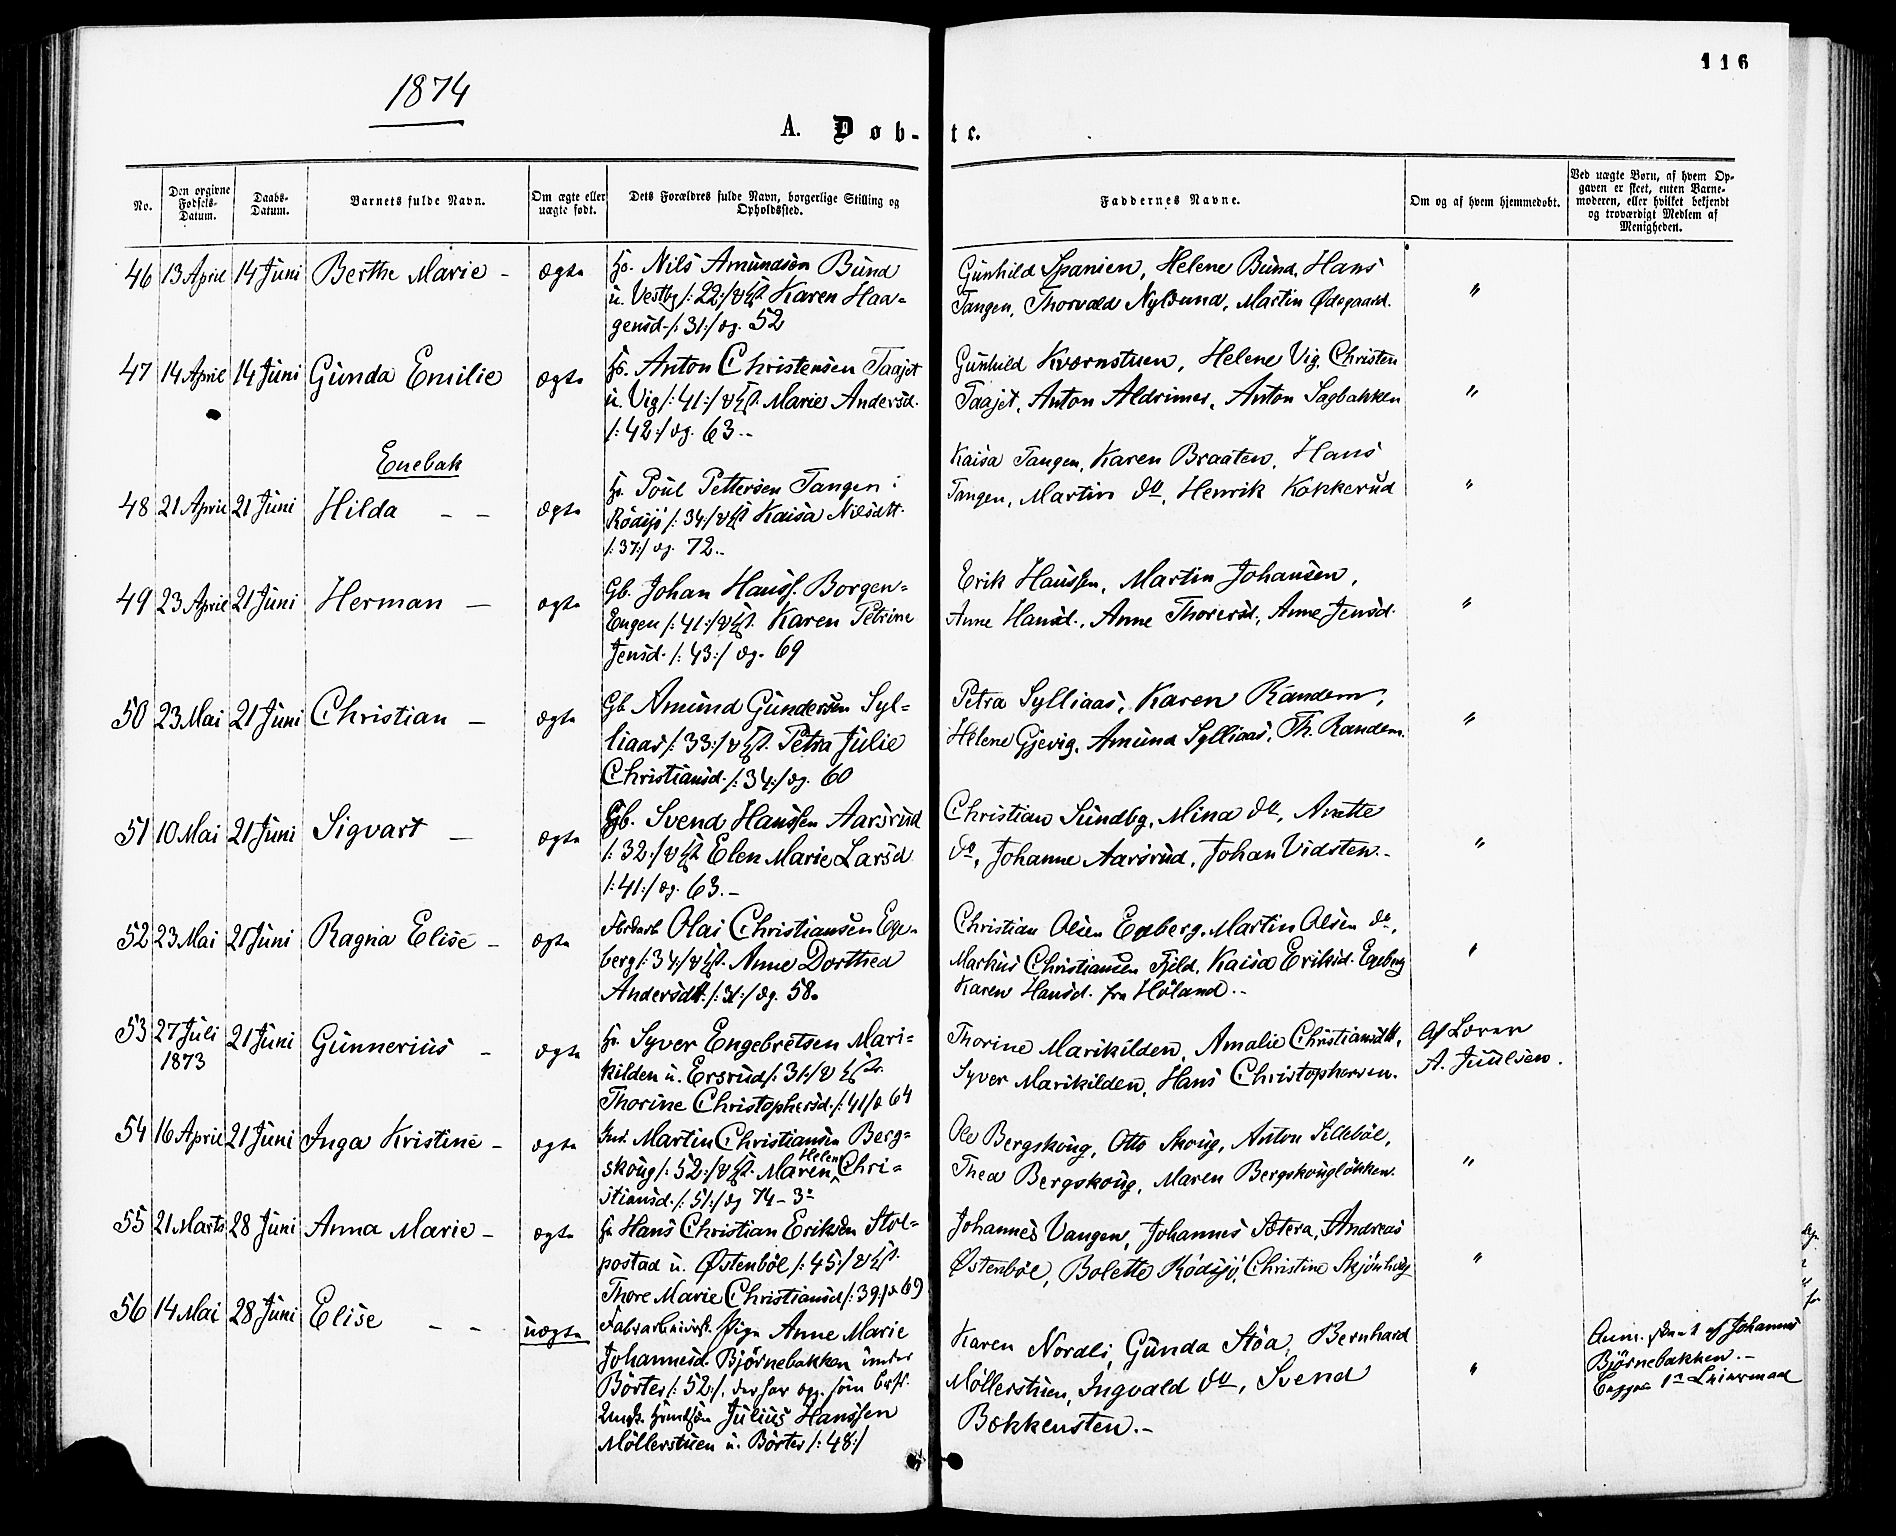 116
1874
A. Døbte.
No.
Den opgivne Fødsels-Datum.
Daabs-Datum.
Barnets fulde Navn.
Om ægte eller uægte født.
Dets Forældres fulde Navn, borgerlige Stilling og Opholdssted.
Faddernes Navne.
Om og af hvem hjemmedøbt.
Ved uægte Børn, af hvem Opgaven er skeet, enten Barnemoderen, eller hvilket bekjendt og troværdigt Medlem af Menigheden.
46 13 April 14 Juni Berthe Marie - ægte
Nils Amundsen Bund
u. Vestby /:22:/ Karen Haa=
gensd. /:31:/ og. 52
Gunhild Spanien, Helene Bund, Hans
Tangen, Thorvald Nylund, Martin Ødegaard.
"
47 14 April 14 Juni Gunda Emilie ægte
Anton Christensen Taajet
u. Vig /:41:/ Marie Andersd.
/:42:/ og. 63.-
Gunhild Kvernstuen, Helene Vig, Christen
Taajet, Anton Aldrimer, Anton Sagbakken
"
Enebak
48 21 April 21 Juni Hilda - - ægte
Poul Pettersen Tangen
Rödsjö /:34:/ Kaisa Nilsdtt.
/:37:/ og. 72.-
Kaisa Tangen, Karen Braaten, Hans
Tangen, Martin do, Henrik Kokkerud
"
49 23 April 21 Juni Herman - ægte
Gb. Johan Hanss. Borgen=
Engen /:41:/ Karen Petrine
Jensd. /:43:/ og. 69
Erik Hanssen, Martin Johansen,
Anne Hansd., Anne Thorersd., Anne Jensd.
"
50 23 Mai 21 Juni Christian - ægte
Gb Amund Gundersen Syl=
liaas /:33:/ Petra Julie
Christiansd. /:34:/ og. 60
Petra Sylliaas, Karen Randem,
Helene Gjevig, Amund Sylliaas, Th. Randem.
"
51 10 Mai 21 Juni Sigvart - ægte
Gb. Svend Hanssen Aarsrud
/:32:/ Elen Marie Larsd
/:41:/ og. 63.-
Christian Sundby, Mina do, Anette
do, Johanne Aarsrud, Johan Vidsten.-
"
52 23 Mai 21 Juni Ragna Elise - ægte
Olai Christiansen Ege=
berg /:34:/ Anne Dorthea
Andersdtt. /:31:/ og. 58.
Christian Olsen Egeberg, Martin Olsen do,
Markus Christiansen Fjeld, Kaisa Eriksd. Egeberg
Karen Hansd. fra Høland.-
"
53 27 Juli 21 Juni Gunnerius - ægte
1873
Syver Engebretsen Mari=
kilden u. Ersrud /:31:/
Thorine Christophersd. /:41/ 64
Thorine Marikilden, Amalie Christiansdtt,
Syver Marikilden, Hans Christophersen.
Af Lærer
A. Juulsen.
54 16 April 21 Juni Inga Kristine - ægte
Inds. Martin Christiansen Berg=
skoug /:52:/ Maren Helene Chri=
stiansd. /:51:/ og 74-
Ole Bergskoug, Otto Skoug, Anton Sillebøl,
Thea Bergskoug, Maren Bergskougløkken.
"
55 21 Marts 28 Juni Anna Marie - ægte
Hans Christian Eriksen Stol=
postad u. Østenbøl /:45:/
Thore Marie Christiansd /:39:/ 69
Johannes Vangen, Johannes Sætera, Andreas
Østenbøl, Bolette Rödsjö, Christine Skjönhaug
"
56 14 Mai 28 Juni Elise - - uægte
Pige Anne Marie
Johannesd. Bjørnebakken under
Börter /:52:/, der har opg. som
Julius Hanssen
Möllerstuen u. Börter /:48:/
Karen Nordli, Gunda Stöa, Bernhard
Möllerstuen, Ingvald do, Svend
Bækkensten.-
"
af Johannes
Bjørnebakken.-